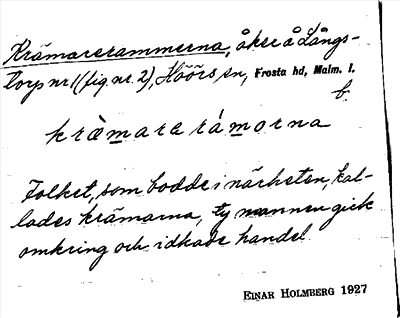 Krämareremmerna, åker å Långs-
torp nr 1 (fig. nr. 2), Höörs sn, Frosta hd, Malm. l.
b.
kræmara ramorna
Folket, som bodde i närheten, kal-
lades krämarna, ty mannen gick
omkring och idkade handel.
EINAR HOLMBERG 1927